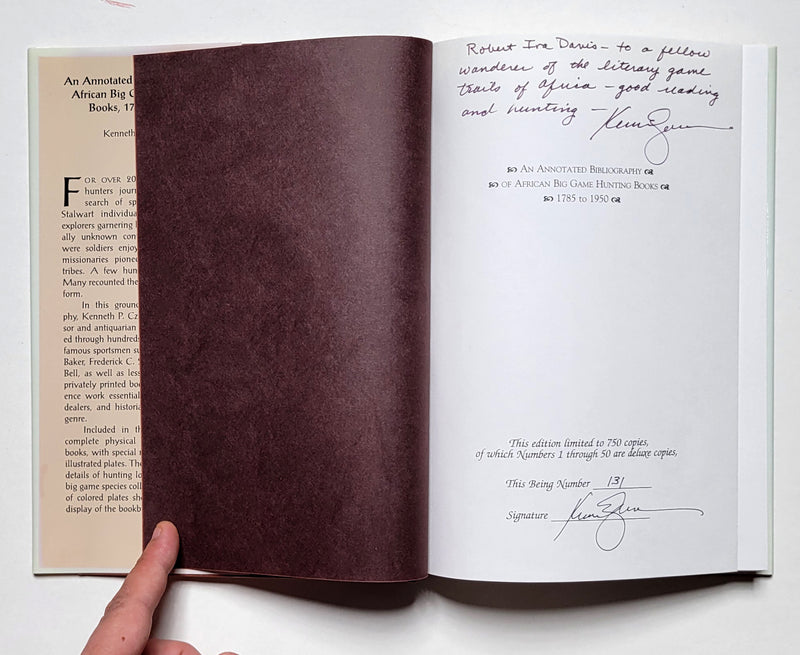 An Annotated
African Big G
Books, 17
Kenneth
FOR OVER 20
hunters jour
search of sp
Stalwart individua
explorers garnering
ally unknown con
were soldiers enjoy
missionaries pionee
tribes. A few hun
Many recounted the
form.
In this ground
phy, Kenneth P. Cz
sor and antiquarian
ed through hundreds
famous sportsmen su
Baker, Frederick C. S
Bell, as well as less
privately printed boo
ence work essential
dealers, and historia
genre.
Included in th
complete physical
books, with special
illustrated plates. The
details of hunting lo
big game species coll
of colored plates sh
display of the bookb
Robert Ira Davis – to a fellow
wanderer of the literary game
trails of Africa – good reading
and hunting –
An Annotated Bibliography
of African Big Game Hunting Books
1785 to 1950
This edition limited to 750 copies,
of which Numbers 1 through 50 are deluxe copies,
This Being Number 131
Signature